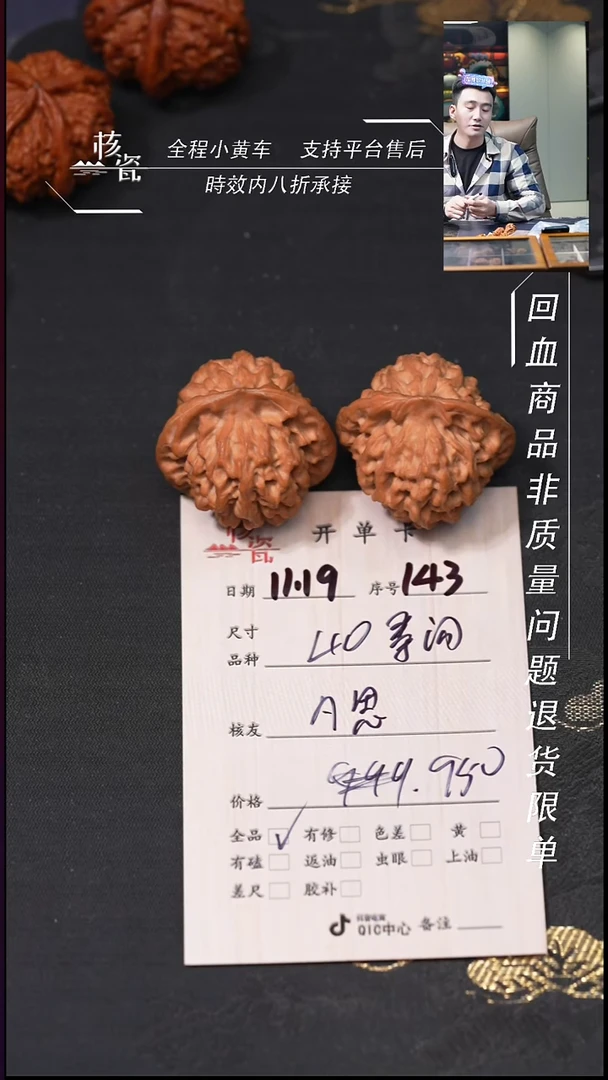 核瓷
全程小黄车 支持平台售后
時效内八折承接
回血商品非质量问题退货限单
核瓷
开单卡
日期 11.19 序号 143
尺寸
品种 40
核友 A思
价格 950
全品 ✓ 有修 色差 黄
有磕 返油 虫眼 上油
差尺 胶补
抖音电商
QIC中心 备注